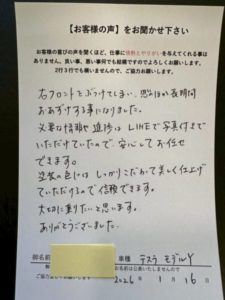 【お客様の声】をお聞かせ下さい
お客様の喜びの声を聞くほど、仕事に信熱とやりがいを与えてくれる事は
ありません。良い事、悪い事何でも結構ですのでよろしくお願いします。
2行3行でも構いませんので、ご協力お願いします。
右フロントをぶつけてしまい、思いのほか長期間
おあずけする事になりました。
必要な情報や進捗はLINEで写真付きで
いただけていたので、安心してお任せ
できます。
塗装の色には しっかりこだわって美しく仕上げ
ていただけるので信頼できます。
大切に乗りたいと思います。
ありがとうございました。
御名前
車種 テスラ モデルY
お名前は公表いたしませんので
2026 1月16日